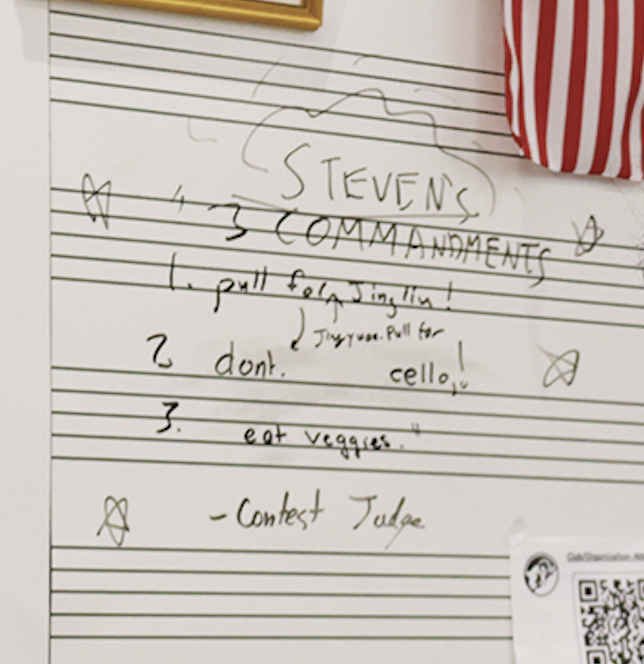 STEVEN'S
"3 COMMANDMENTS
1. pull for Jingliu!
Jingyuan. Pull for
2 dont. cello,!
3. eat veggies."
- Contest Judge